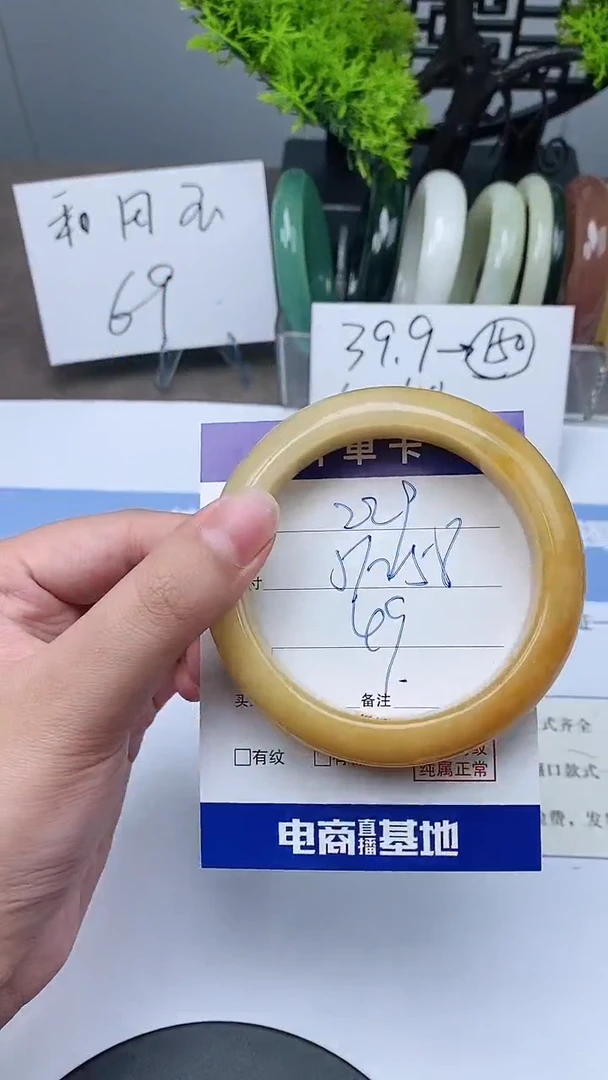 和田玉
69
39.9→150
单卡
229
57-58
69.
寸
买
备注
□有纹
纯属正常
电商直播基地
式齐全
口款式
费，发